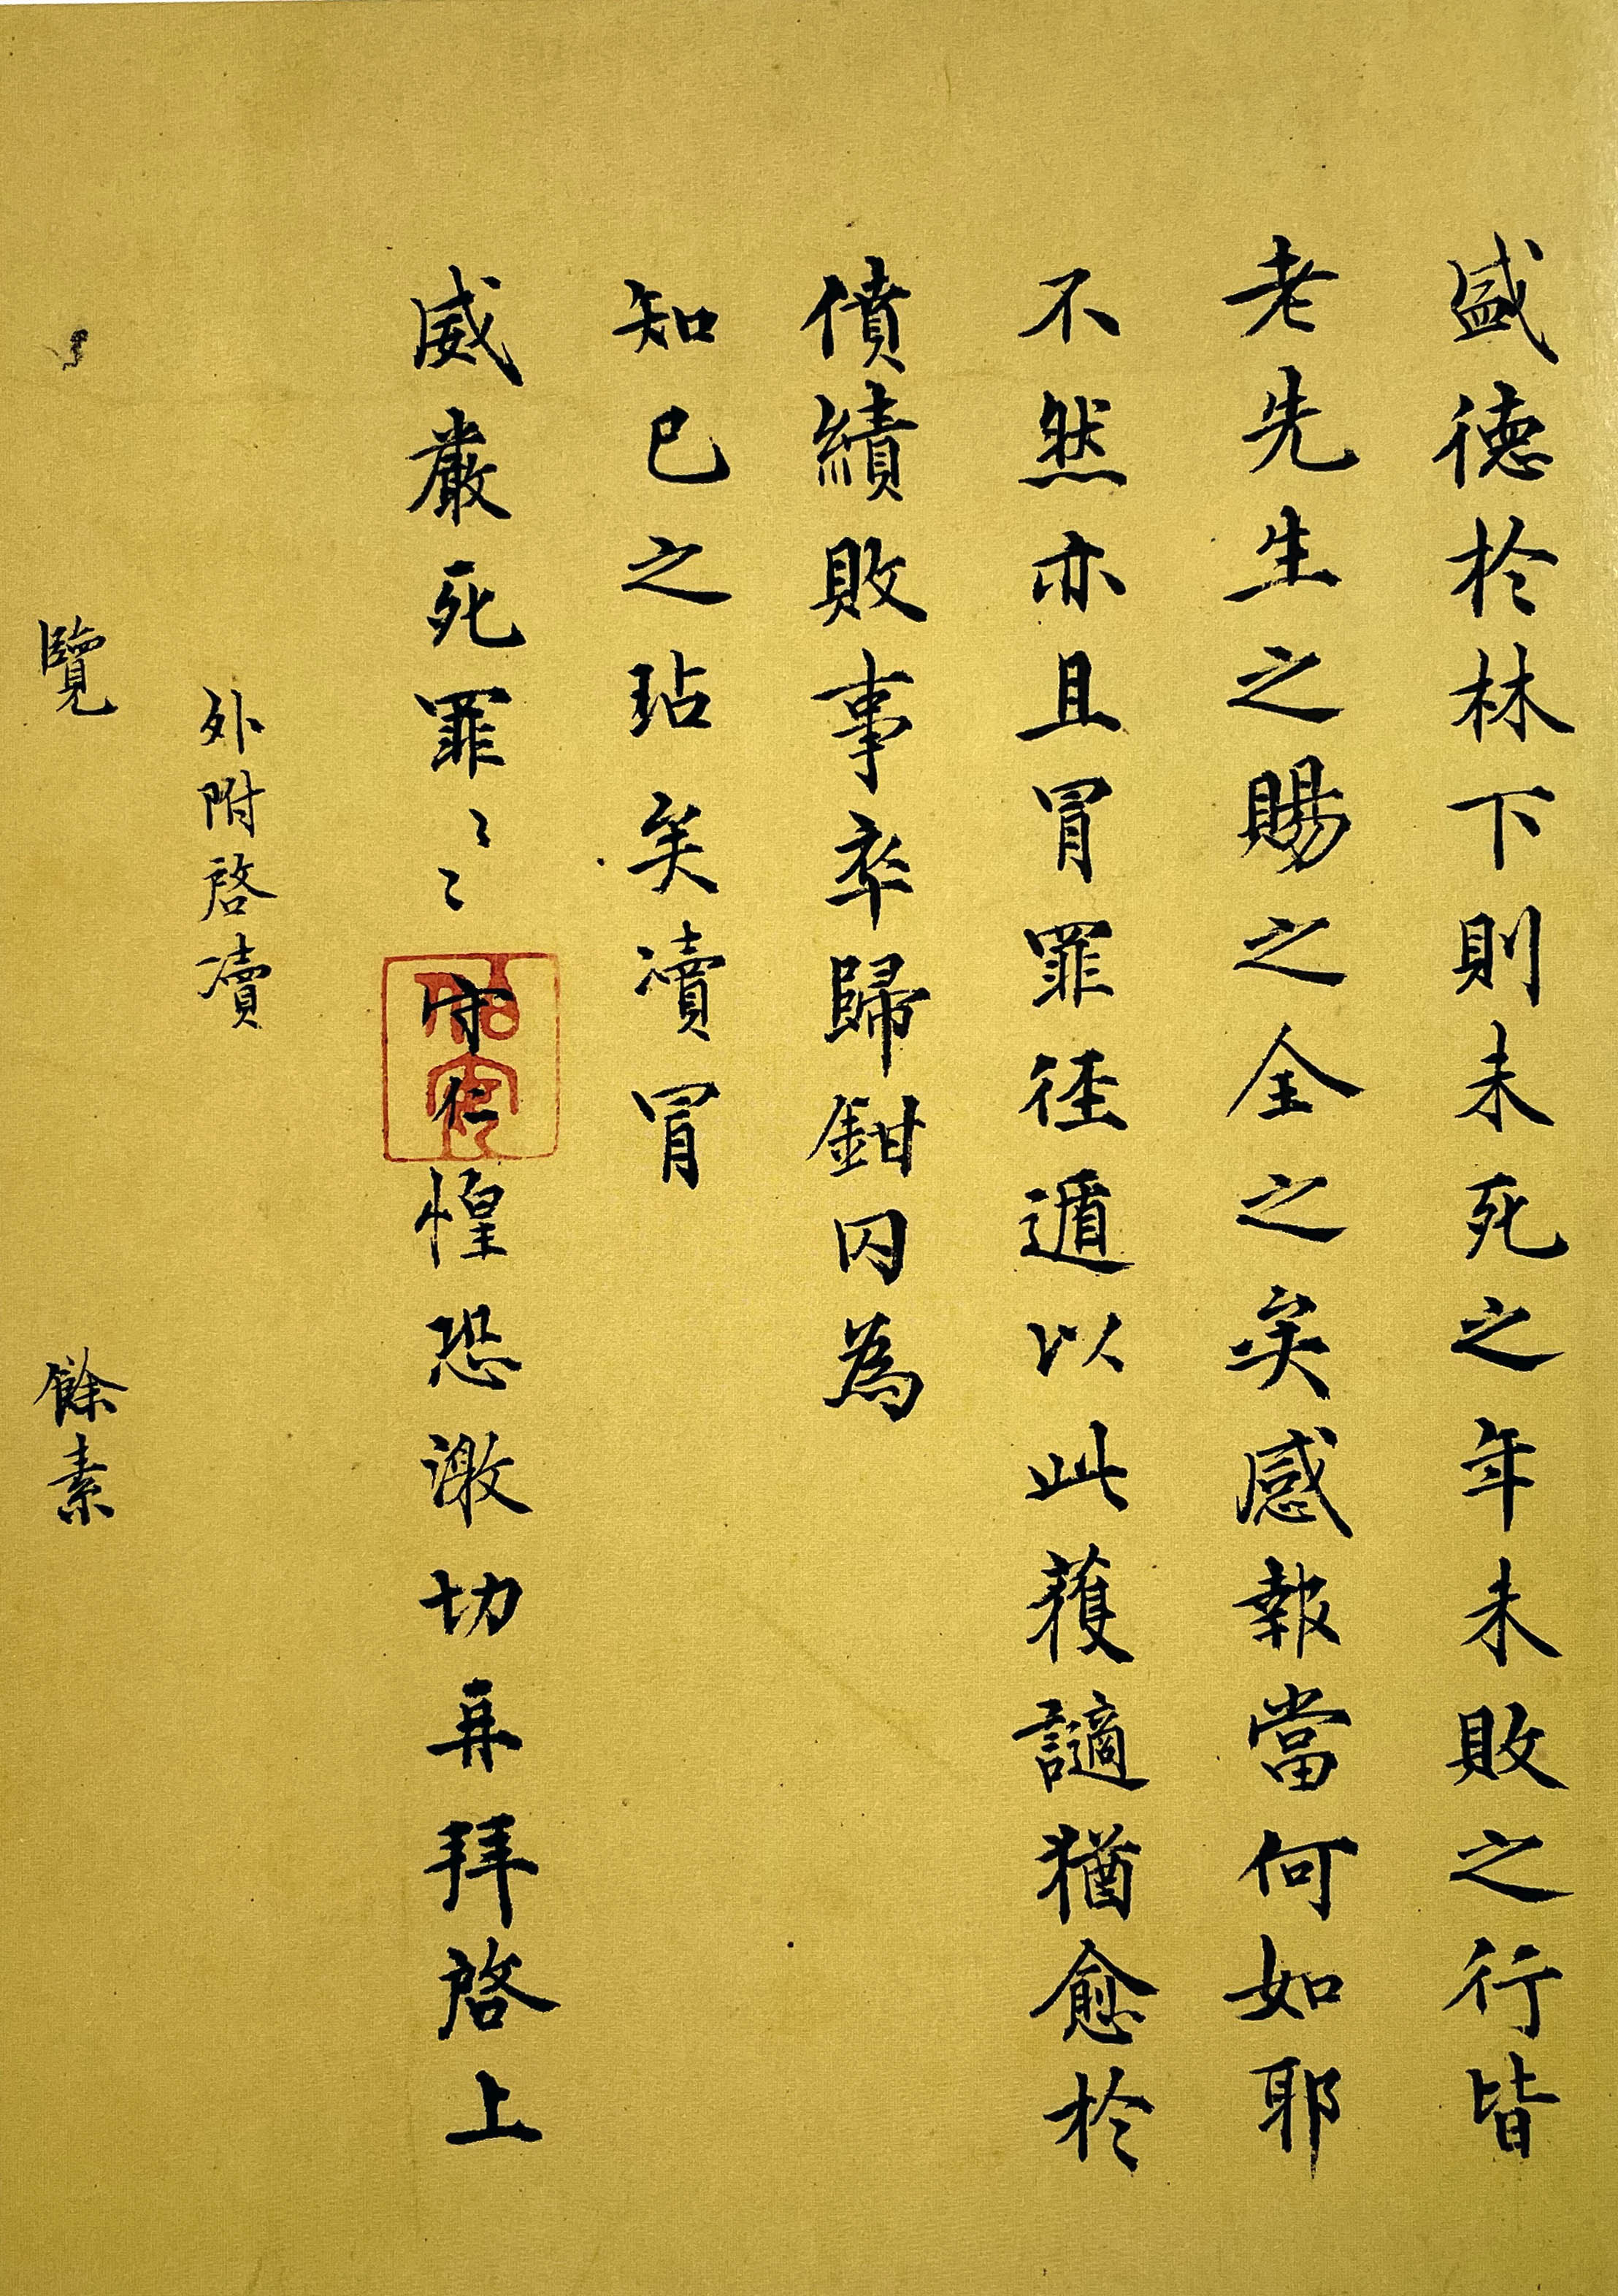 盛德於林下則未死之年未敗之行皆
老先生之賜之全之矣感報當何如耶
不然亦且冒罪徑遁以此獲謫猶愈於
僨績敗事卒歸鉗囚為
知已之玷矣瀆冒
威嚴死罪〻〻守仁惶恐激切再拜啓上
外附啓瀆
覽 餘素